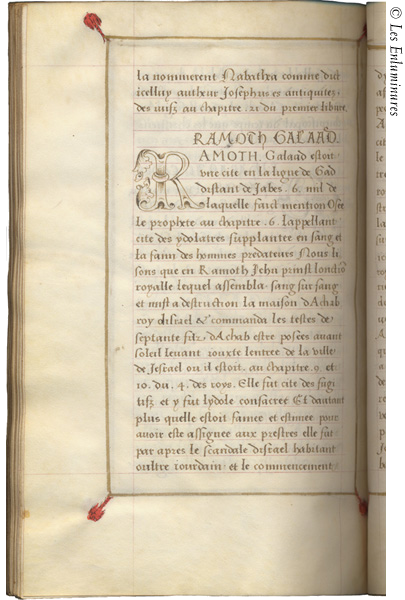 la nommerent Nabathea comme dict
icelluy autheur Josephus es antiquitez
des iuifz au chapitre . 21 du premier libure
RAMOTH GALAAD
RAMOTH . Galaad estoit
vne cite en la ligne de Gad
distant de Jabes . 6 . mil de
laquelle faict mention Osee
le prophete au chapitre . 6 . lappellant
cite des ydolatres supplantee en sang et
la faim des hommes predateurs Nous li
sons que en Ramoth Jehu prinst lonctiõ
royalle lequel assembla sang sur sang
et mist a destruction la maison dAchab
roy disrael & commanda les testes de
septante filz dAchab estre posees auant
soleil leuant iouxte lentree de la ville
de Jesrael ou il estoit . au chapitre . 9 et
10 . du . 4 . des roys . Elle fut cite des fugi
tifz et y fut lydole consacree Et dautant
plus quelle estoit famee et estimee pour
auoir este assignee aux prestres elle fut
par apres le scandale disrael habitant
oultre iourdain . et le commencement
© Les Enluminures